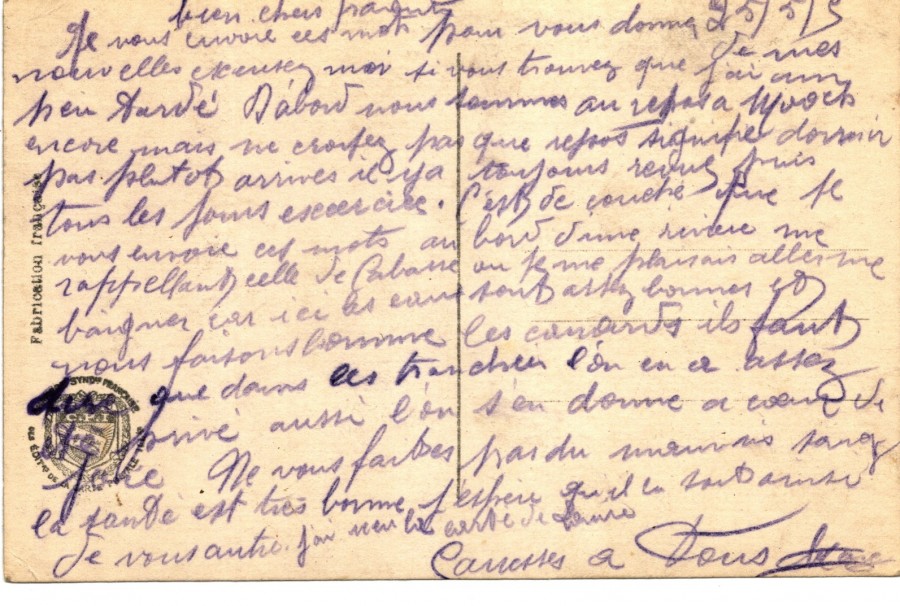 bien chers parents
25/5/5
Je vous envoie ces mots pour vous donner de mes
nouvelles excusez moi si vous trouvez que j'ai un
peu tardé D'abord nous sommes au repos a
encore mais ne croyez pas que repos signifie dormir
pas plutot arrives il y a toujours revue puis
tous les jours exercice. C'est de couché que je
vous envoie ces mots au bord d'une riviere me
rappellant celle de Cabasse ou je me plaisais aller me
baigner car ici les eaux sont assez bonnes et
nous faisons comme les canards ils faut
dire que dans les tranchees l'on en a assez
privé aussi l'on s'en donne a cœur de
joie Ne vous faites pas du mauvais sang
la santé est très bonne j'espere qu'il en soit ainsi
de vous autre. j'ai reçu la carte de
Caresses a Tous
Fabrication française
SYNDt FRANÇAIS
DES ÉDITrs DE LA CARTE POSTALE